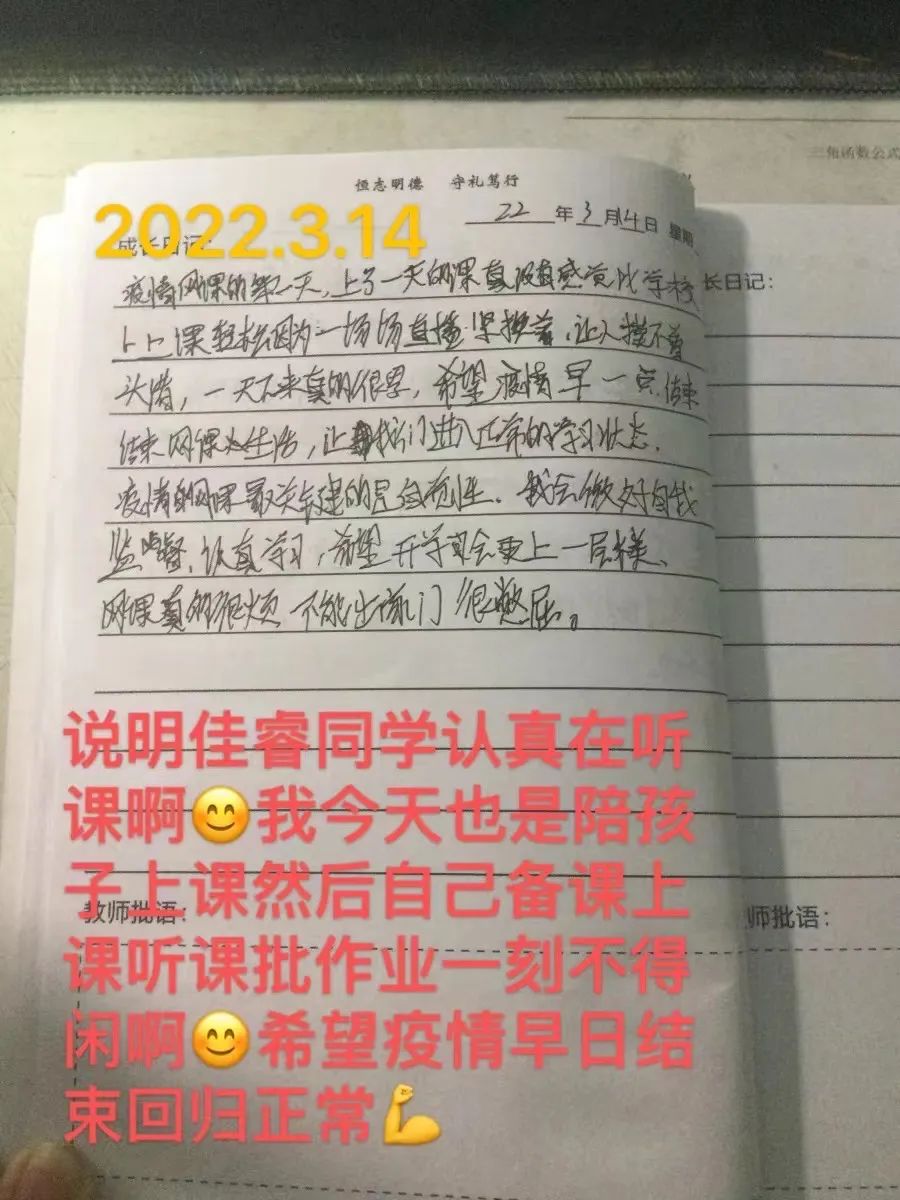 三角函数公式
恒志明德 守礼笃行
2022.3.14
22年3月14日 星期
成长日记:
长日记:
疫情网课的第一天,上了一天的课真没真感觉比学校
上上课轻松因为一场场直播坚挨着,让人摸不着
头绪,一天下来真的很累,希望疫情早一点结束
结束网课的生活,让我们进入正常的学习状态.
疫情的网课最关键的是自觉性.我会做好自我
监督,认真学习,希望开学可会更上一层楼、
网课真的很烦 不能出家门 很憋屈。
说明佳睿同学认真在听
课啊😊我今天也是陪孩
子上课然后自己备课上
教师批语:
师批语:
课听课批作业一刻不得
闲啊😊希望疫情早日结
束回归正常💪